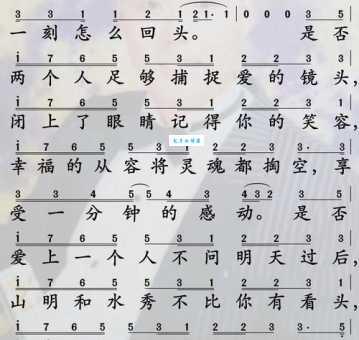 3 3 1 1 2 1 2 1· 1 | 0 0 0 3 5 |
一刻怎么回头。 是否
i 7 6 5 5 3 1 2 2 3 3 |
两个人足够捕捉爱的镜头,
i 7 6 5 5 3 1 2 2 3 1 |
闭上了眼睛记得你的笑容,
i 7 6 5 5 3 1 2 2 3 3· 3 |
幸福的从容将灵魂都掏空,享
3 3 4 5 5 5 4 3 4 3 2 3 5 |
受一分钟的感动。是否
i 7 6 5 5 3 1 2 2 3 3 |
爱上一个人不问明天过后,
i 7 6 5 5 3 1 2 2 3 1 |
山明和水秀不比你有看头,
i 7 6 5 5 3 1 2 2 3 3· 5 |